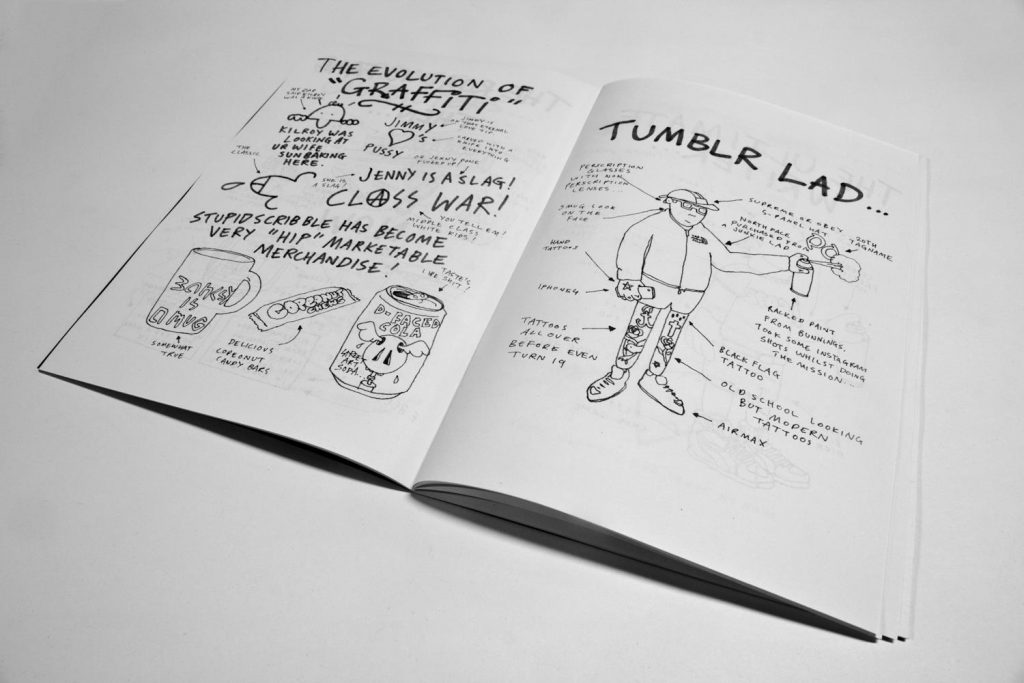 THE EVOLUTION OF
"GRAFFITI"
KILROY WAS
LOOKING AT
UR WIFE
SUNBAKING
HERE.
JIMMY
'S
PUSSY
CARVED WITH A
KNIFE INTO
EVERYTHING
THE
CLASSIC
SHE IS
A SLAG!
JENNY IS A SLAG!
CLASS WAR!
YOU TELL EM!
MIDDLE CLASS
WHITE KIDS!
STUPID SCRIBBLE HAS BECOME
VERY "HIP" MARKETABLE
MERCHANDISE!
TASTE'S
LIKE SHIT!
BANKSY
IS
A MUG
SOMEWHAT
TRUE
COPE2NUT
CHEWS
DELICIOUS
COPE2NUT
CANDY BARS
D-FACED
COLA
ART
SODA
TUMBLR LAD...
PERSCRIPTION
GLASSES
WITH NON
PERSCRIPTION
LENSES
SMUG LOOK
ON THE
FACE
HAND
TATTOOS
IPHONE6
TATTOOS
ALL OVER
BEFORE EVEN
TURN 19
SUPREME OR OBEY
5-PANEL HAT
NORTH FACE
PURCHASED FROM
A JUNKIE LAD
20TH
TAGNAME
RACKED PAINT
FROM BUNNINGS,
TOOK SOME INSTAGRAM
SHOTS WHILST DOING
THE MISSION...
BLACK FLAG
TATTOO
OLD SCHOOL LOOKING
BUT MODERN
TATTOOS
AIRMAX